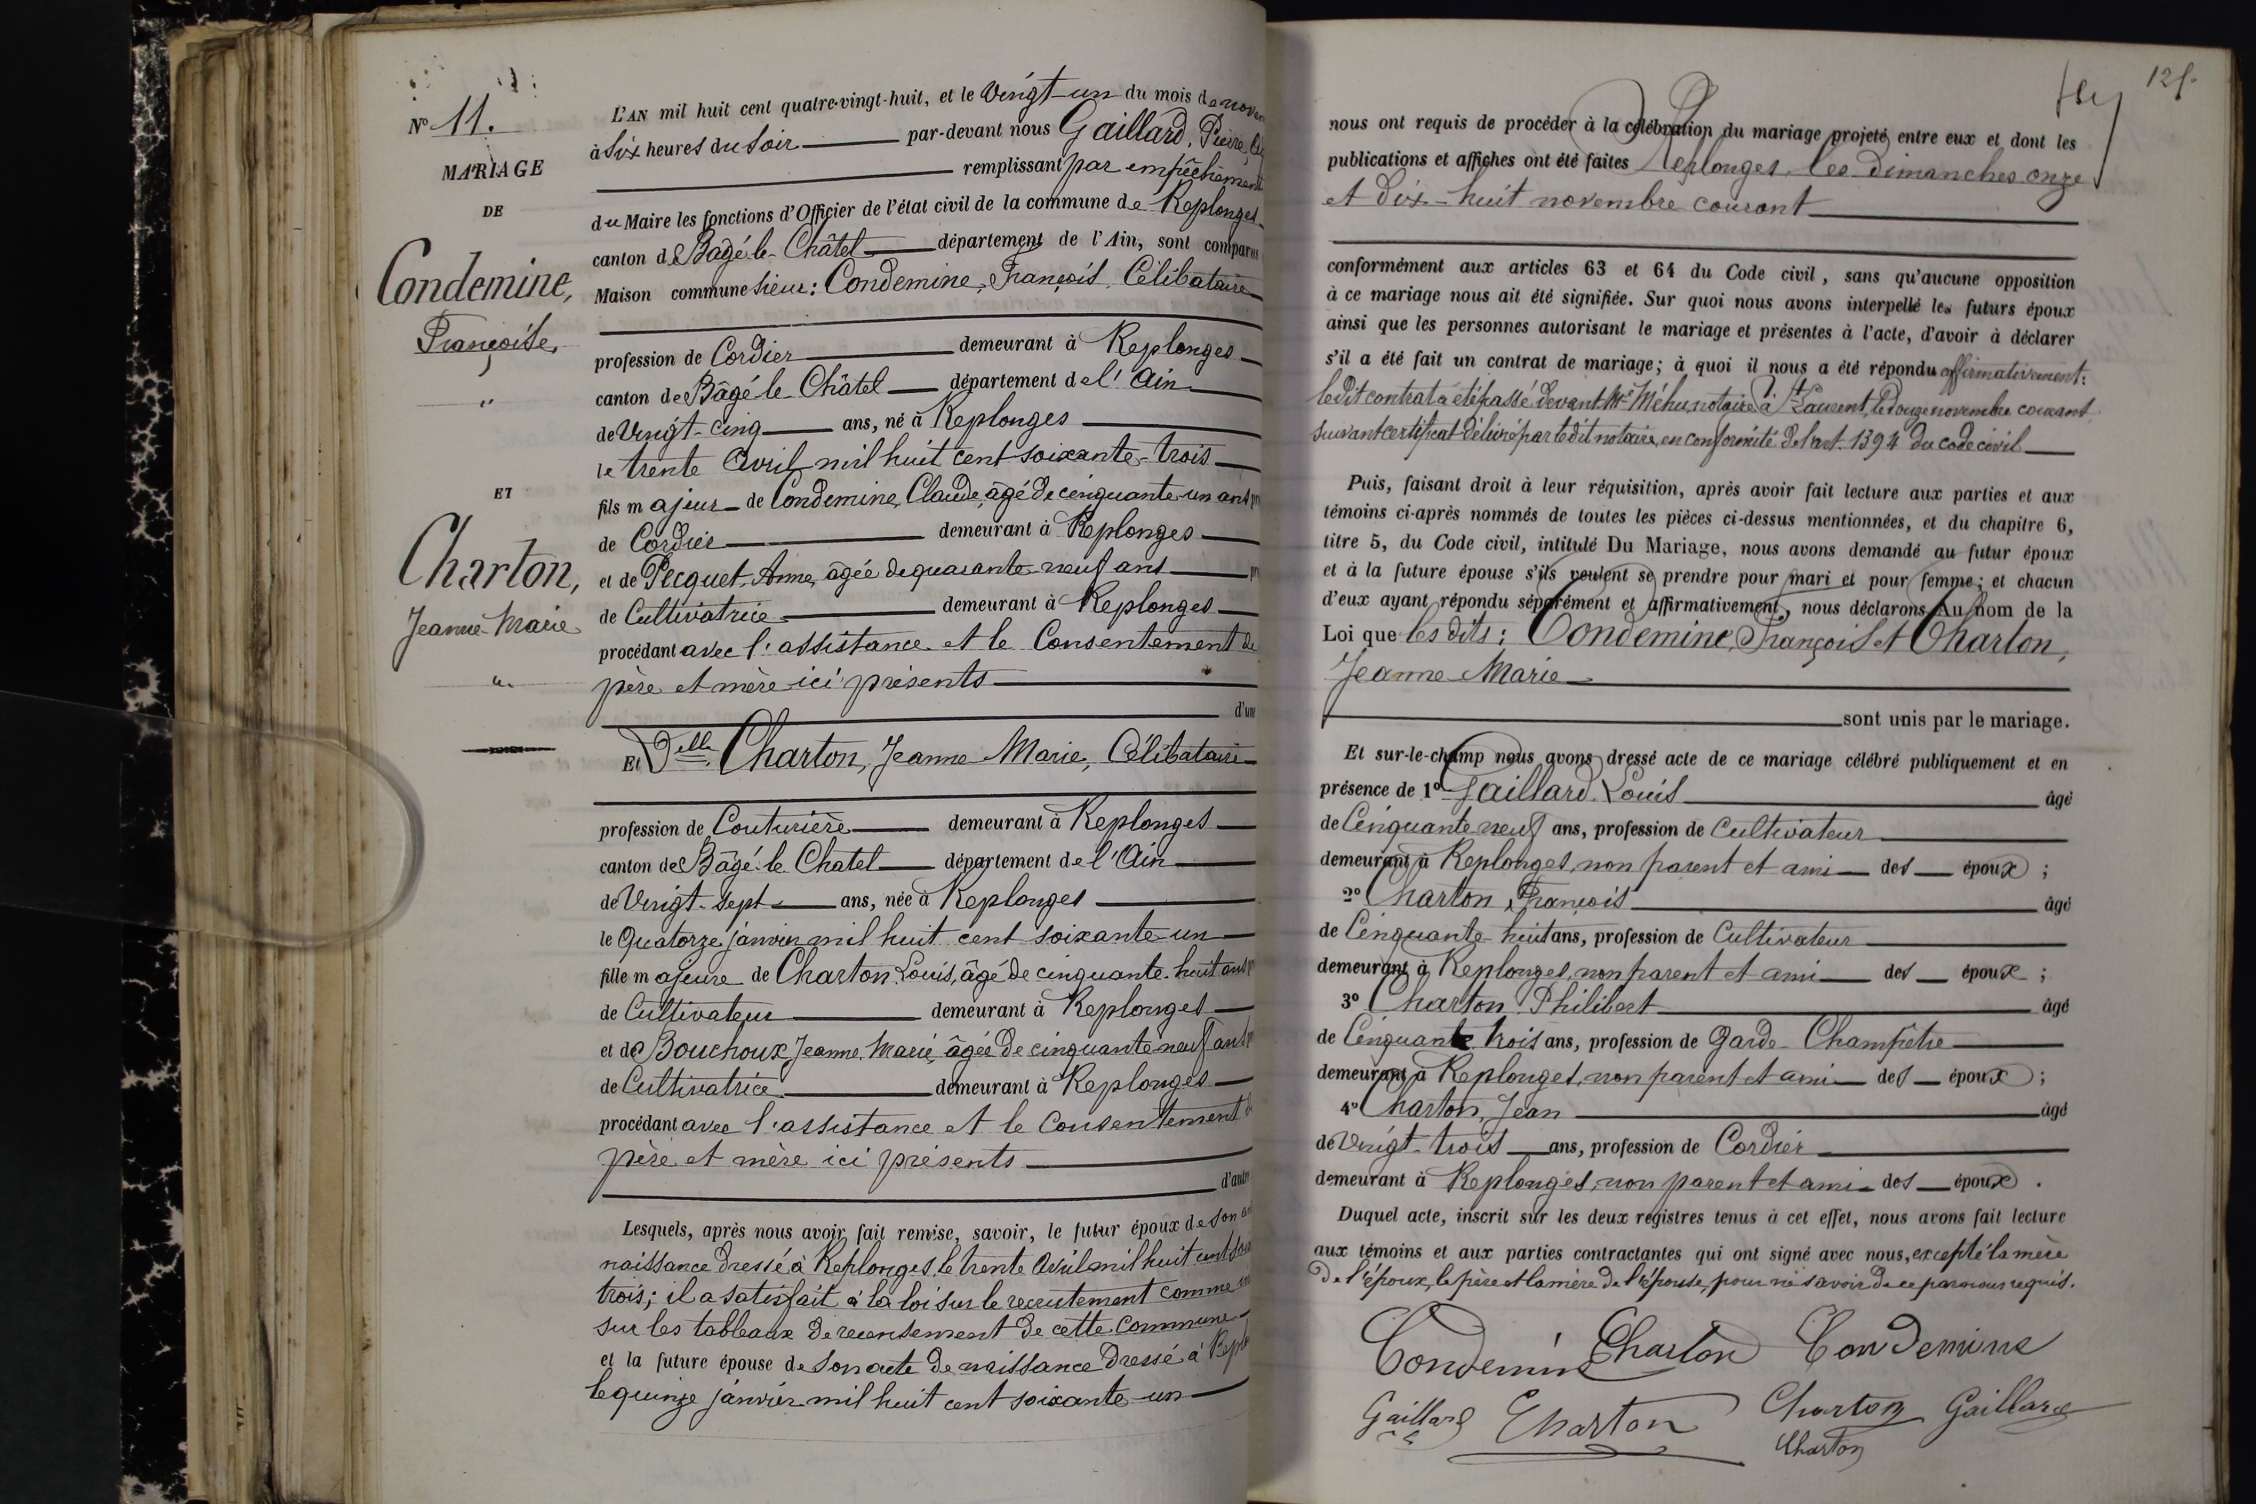 Nº 11.
MARIAGE
DE
Condemine,
François,
ET
Charton,
Jeanne-Marie
L'AN mil huit cent quatre-vingt-huit, et le Vingt-un du mois de novem
à Six heures du Soir par-devant nous Gaillard, Pierre,
remplissant par empêchement
du Maire les fonctions d'Officier de l'état civil de la commune de Replonges
canton de Bâgé-le-Châtel département de l'Ain, sont comparus
Maison commune sieur : Condemine, François, Célibataire
profession de Cordier demeurant à Replonges
canton de Bâgé-le-Châtel département de l'Ain
de Vingt-cinq ans, né à Replonges
le trente Avril mil huit cent soixante-trois
fils majeur de Condemine, Claude, âgé de cinquante-un ans
de Cordier demeurant à Replonges
et de Pecquet, Anne, âgée de quarante-neuf ans
de Cultivatrice demeurant à Replonges
procédant avec l'assistance et le Consentement de
père et mère ici présents
d'une
Et Delle Charton, Jeanne Marie, Célibataire
profession de Couturière demeurant à Replonges
canton de Bâgé-le-Châtel département de l'Ain
de Vingt-sept ans, née à Replonges
le Quatorze janvier mil huit cent soixante-un
fille majeure de Charton Louis, âgé de cinquante-huit ans
de Cultivateur demeurant à Replonges
et de Bouchoux, Jeanne Marie, âgée de cinquante-neuf ans
de Cultivatrice demeurant à Replonges
procédant avec l'assistance et le Consentement de
père et mère ici présents
d'autre
Lesquels, après nous avoir fait remise, savoir, le futur époux de son
naissance dressé à Replonges, le trente Avril mil huit cent
trois ; il a satisfait à la loi sur le recrutement comme
sur les tableaux de recensement de cette commune
et la future épouse de son acte de naissance dressé à Repl
le quinze janvier mil huit cent soixante-un
125.
nous ont requis de procéder à la célébration du mariage projeté entre eux et dont les
publications et affiches ont été faites Replonges les dimanches onze
et dix-huit novembre courant
conformément aux articles 63 et 64 du Code civil, sans qu'aucune opposition
à ce mariage nous ait été signifiée. Sur quoi nous avons interpellé les futurs époux
ainsi que les personnes autorisant le mariage et présentes à l'acte, d'avoir à déclarer
s'il a été fait un contrat de mariage ; à quoi il nous a été répondu affirmativement :
le dit contrat a été passé devant Me Méhu, notaire à St Laurent, le douze novembre courant
suivant certificat délivré par le dit notaire, en conformité de l'art. 1394 du code civil
Puis, faisant droit à leur réquisition, après avoir fait lecture aux parties et aux
témoins ci-après nommés de toutes les pièces ci-dessus mentionnées, et du chapitre 6,
titre 5, du Code civil, intitulé Du Mariage, nous avons demandé au futur époux
et à la future épouse s'ils veulent se prendre pour mari et pour femme ; et chacun
d'eux ayant répondu séparément et affirmativement, nous déclarons Au nom de la
Loi que les dits : Condemine, François et Charton,
Jeanne Marie
sont unis par le mariage.
Et sur-le-champ nous avons dressé acte de ce mariage célébré publiquement et en
présence de 1º Gaillard, Louis âgé
de Cinquante-neuf ans, profession de Cultivateur
demeurant à Replonges, non parent et ami des époux ;
2º Charton, François âgé
de Cinquante-huit ans, profession de Cultivateur
demeurant à Replonges, non parent et ami des époux ;
3º Charton, Philibert âgé
de Cinquante trois ans, profession de Garde-Champêtre
demeurant à Replonges, non parent et ami des époux ;
4º Charton, Jean âgé
de Vingt-trois ans, profession de Cordier
demeurant à Replonges, non parent et ami des époux .
Duquel acte, inscrit sur les deux registres tenus à cet effet, nous avons fait lecture
aux témoins et aux parties contractantes qui ont signé avec nous, excepté la mère
de l'époux, le père et la mère de l'épouse, pour ne savoir de ce par nous requis.
Condemine Charton Condemine
Gaillard Charton Charton Gaillard
Charton